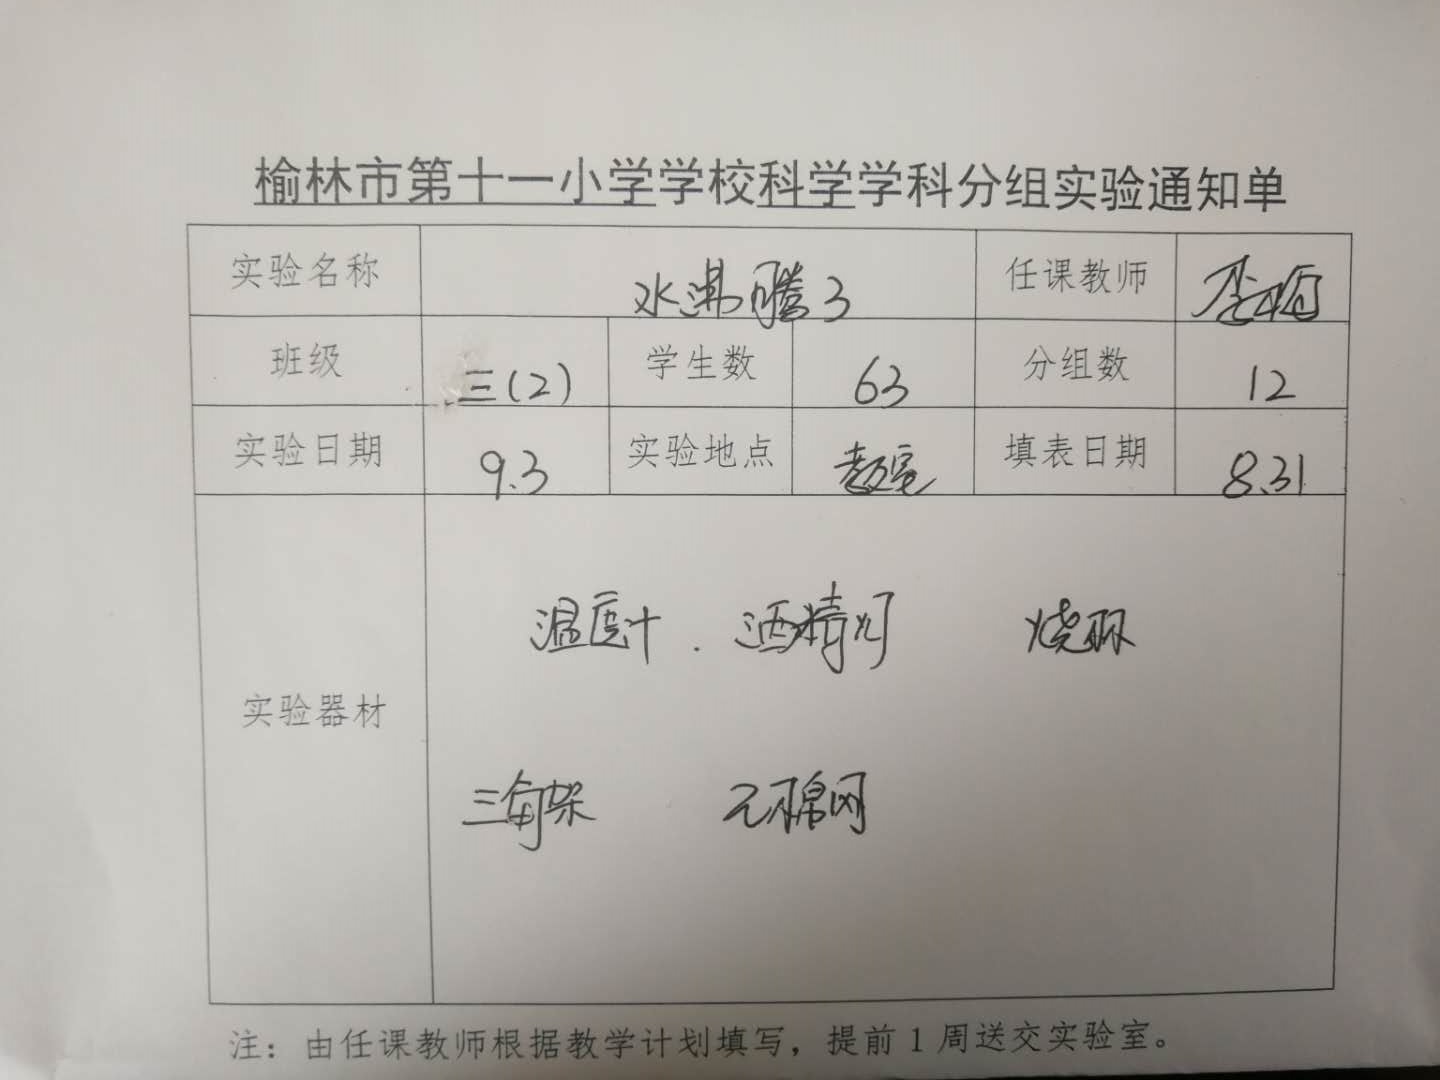 榆林市第十一小学学校科学学科分组实验通知单
实验名称 水沸腾了 任课教师
班级 三(2) 学生数 63 分组数 12
实验日期 9.3 实验地点 教室 填表日期 8.31
温度计. 酒精灯 烧杯
实验器材
三角架 石棉网
注：由任课教师根据教学计划填写，提前1周送交实验室。